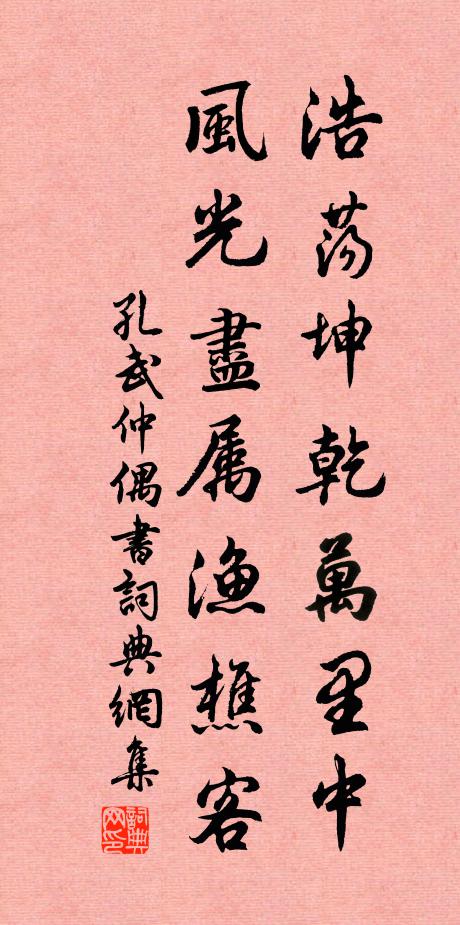 浩荡坤乾萬里中
風光盡属漁樵客
孔武仲偶書詞典網集
詞典网印